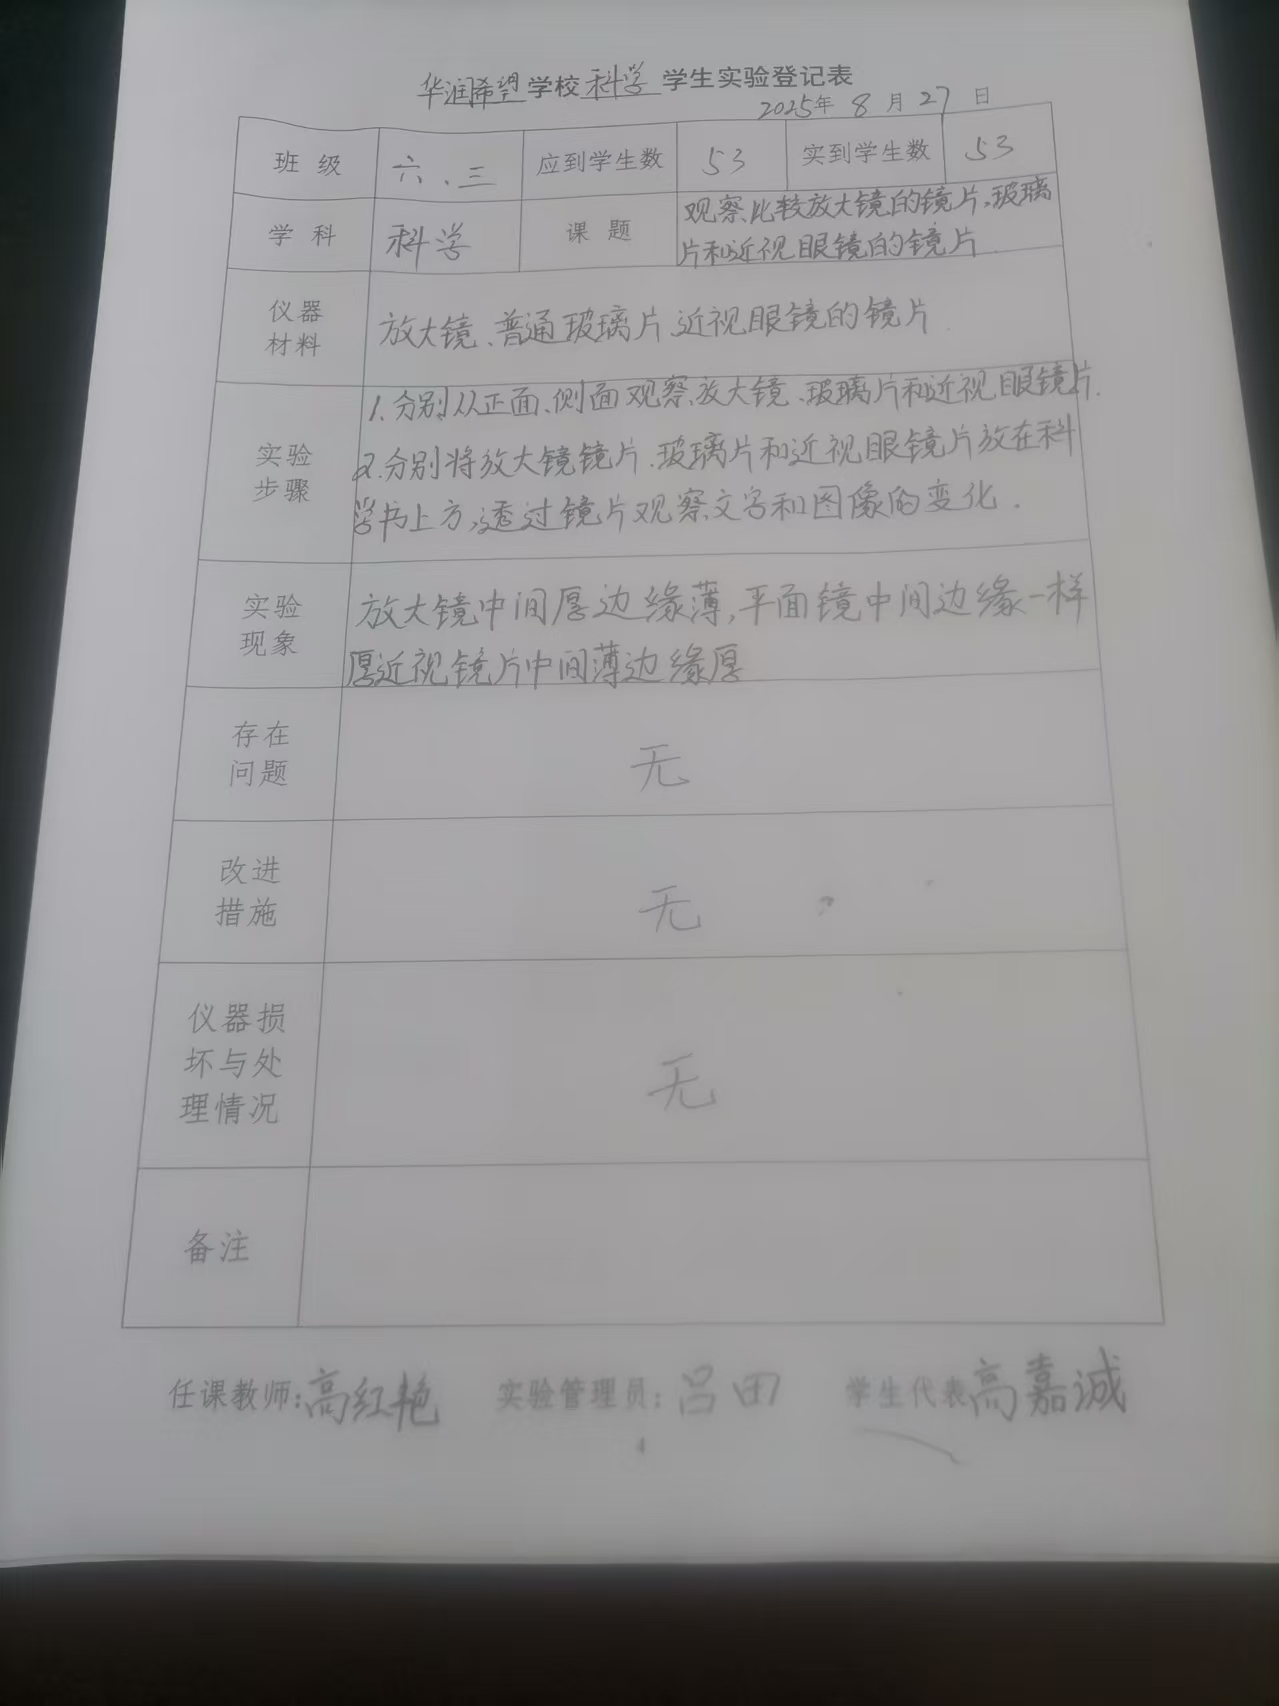 华润希望学校科学学生实验登记表
2025年 8 月 27 日
班 级 六.三 应到学生数 53 实到学生数 53
学 科 科学 课 题 观察比较放大镜的镜片、玻璃
片和近视眼镜的镜片.
仪器
材料
放大镜、普通玻璃片、近视眼镜的镜片.
实验
步骤
1.分别从正面、侧面观察放大镜、玻璃片和近视眼镜片.
2.分别将放大镜镜片、玻璃片和近视眼镜片放在科
学书上方,透过镜片观察文字和图像的变化.
实验
现象
放大镜中间厚边缘薄,平面镜中间边缘一样
厚近视镜片中间薄边缘厚
存在
问题
无
改进
措施
无
仪器损
坏与处
理情况
无
备注
任课教师:高红艳 实验管理员:吕田 学生代表高嘉诚
4